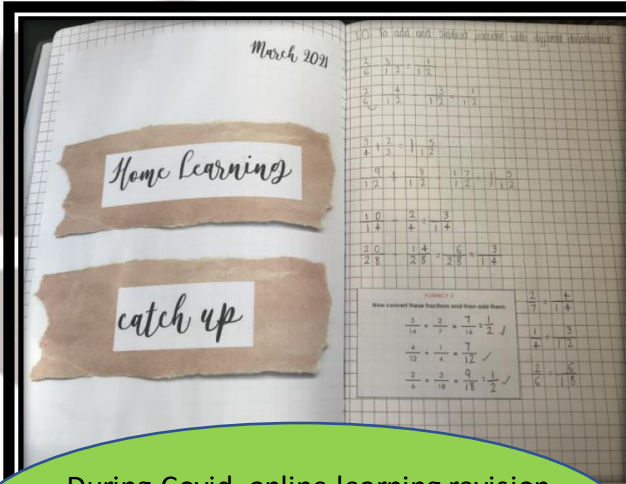 March 2021
Home Learning
catch up
L.O: To add and subtract fractions with different denominators
2/6 - 3/12 = 1/12
2/6 4/12 - 3/12 = 1/12
3/4 + 2/3 = 1 5/12
9/12 + 8/12 = 17/12 = 1 5/12
10/14 - 2/4 = 3/14
20/28 - 14/28 = 6/28 = 3/14
FLUENCY 2
Now convert these fractions and then add them.
3/14 + 2/7 = 7/14 = 1/2 ✓
4/12 + 1/4 = 7/12 ✓
2/6 + 3/18 = 9/18 = 1/2 ✓
2/7 = 4/14
1/4 = 3/12
2/6 = 6/18
During Covid, online learning revision